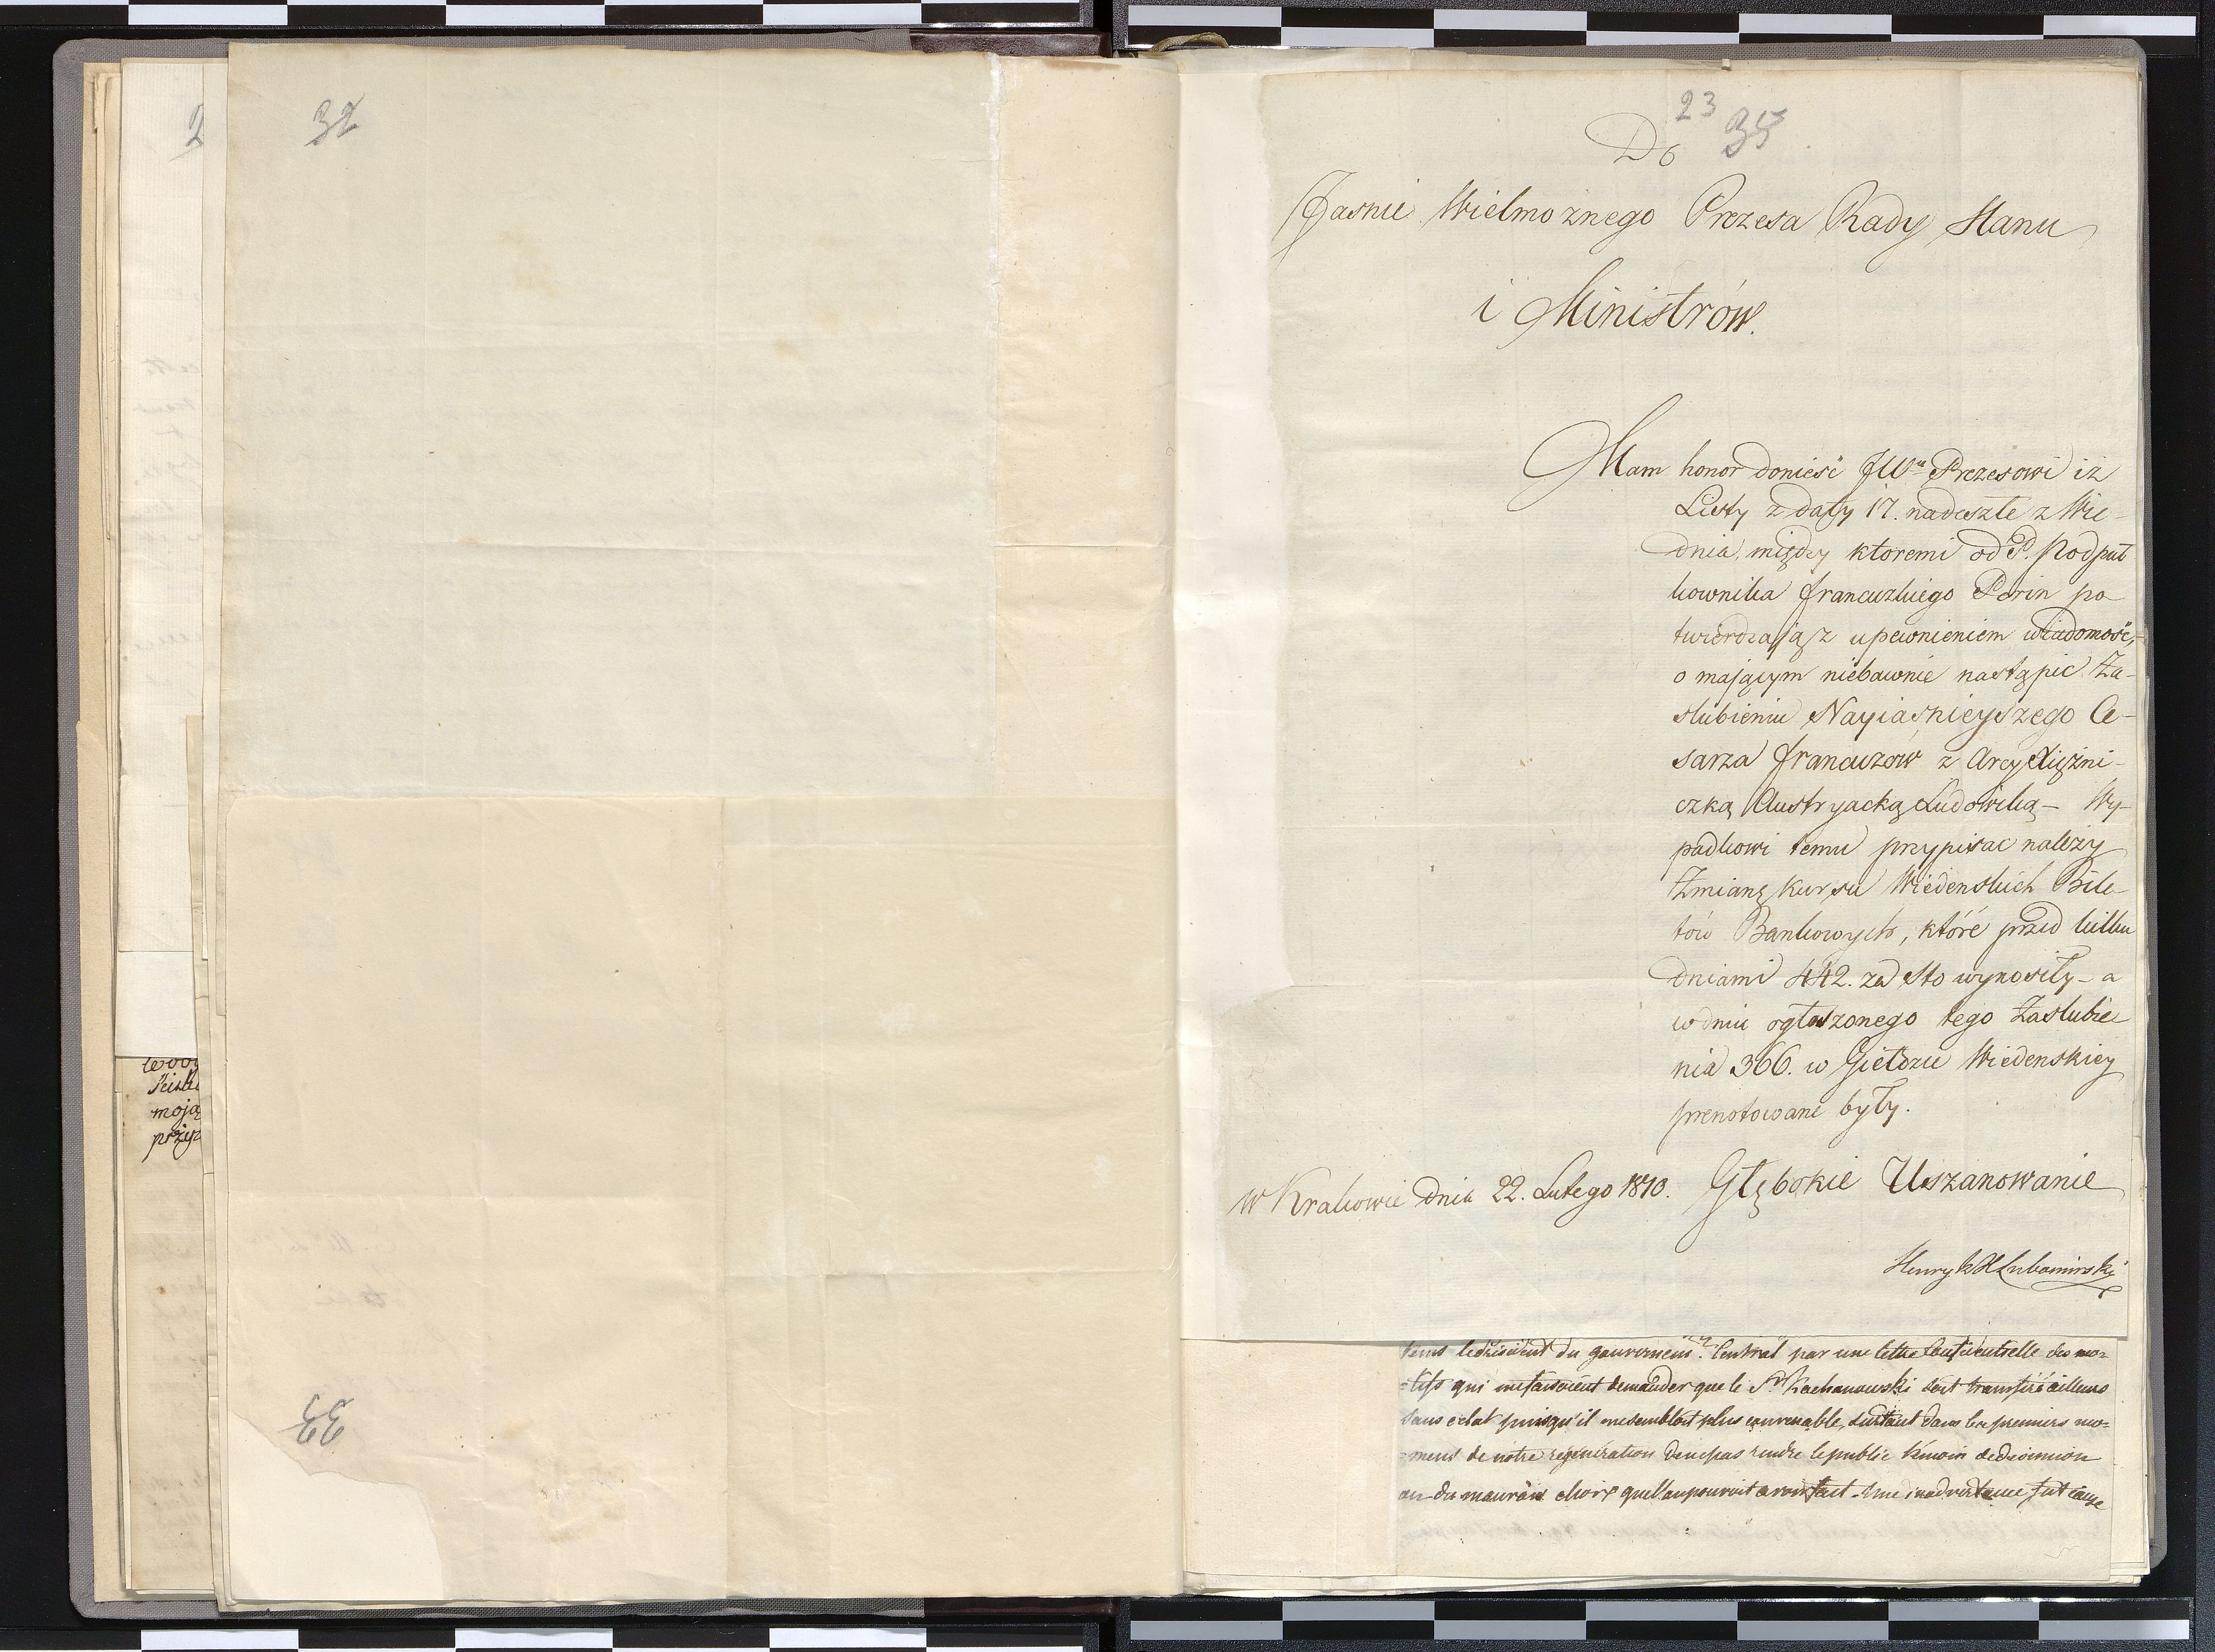 32
2
wooy
moją
33
23
35
Do
Jasnie Wielmożnego Prezesa Rady Stanu
i Ministrów.
Mam honor donieść JWu Prezesowi iż
Listy z daty 17. nadeszłe z Wie-
dnia, między ktoremi od P. Podpuł
kownika francuzkiego Perin po
twierdzają z upewnieniem wiadomość,
o mającym niebawnie nastąpic Za-
slubieniu Nayiasnieyszego Ce-
sarza francuzow z Arcy Xiężni-
czką Austryacką Ludowiką - Wy-
padkowi temu przypisac należy
Zmianę kursu Wiedenskich Bile-
tów Bankowych, któré przed kilku
dniami 442. za Sto wynosiły - a
w dniu ogłoszonego tego Zaslubie
nia 366. w Giełdzie Wiedenskiey
prenotowane były.
w Krakowie dnia 22. Lutego 1810. Głębokie Uszanowanie
Henryk X Lubomirski
du gouvernemt. Central par une lettre Confidentielle des mo=
=tifs qui me faisoient demander que le Sr. Kochanowski soit transferé ailleurs
sans eclat puisqu'il me sembloit plus convenable, surtout dans les premiers mo=
=mens de notre régénération de ne pas rendre le public témoin de desunion
ou du mauvais choix que l'on pouvoit avoir fait. Une inadvertance fut cause